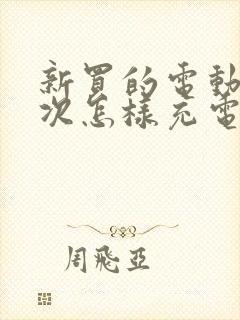 新買的電動
次怎樣充電
周飛亞